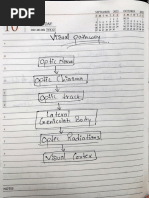 10
SEPTEMBER
Visual pathway
Optic Nerve
Optic Chiasma
Optic tract
Lateral
Geniculate Body
Optic Radiations
Visual Cortex
NOTES